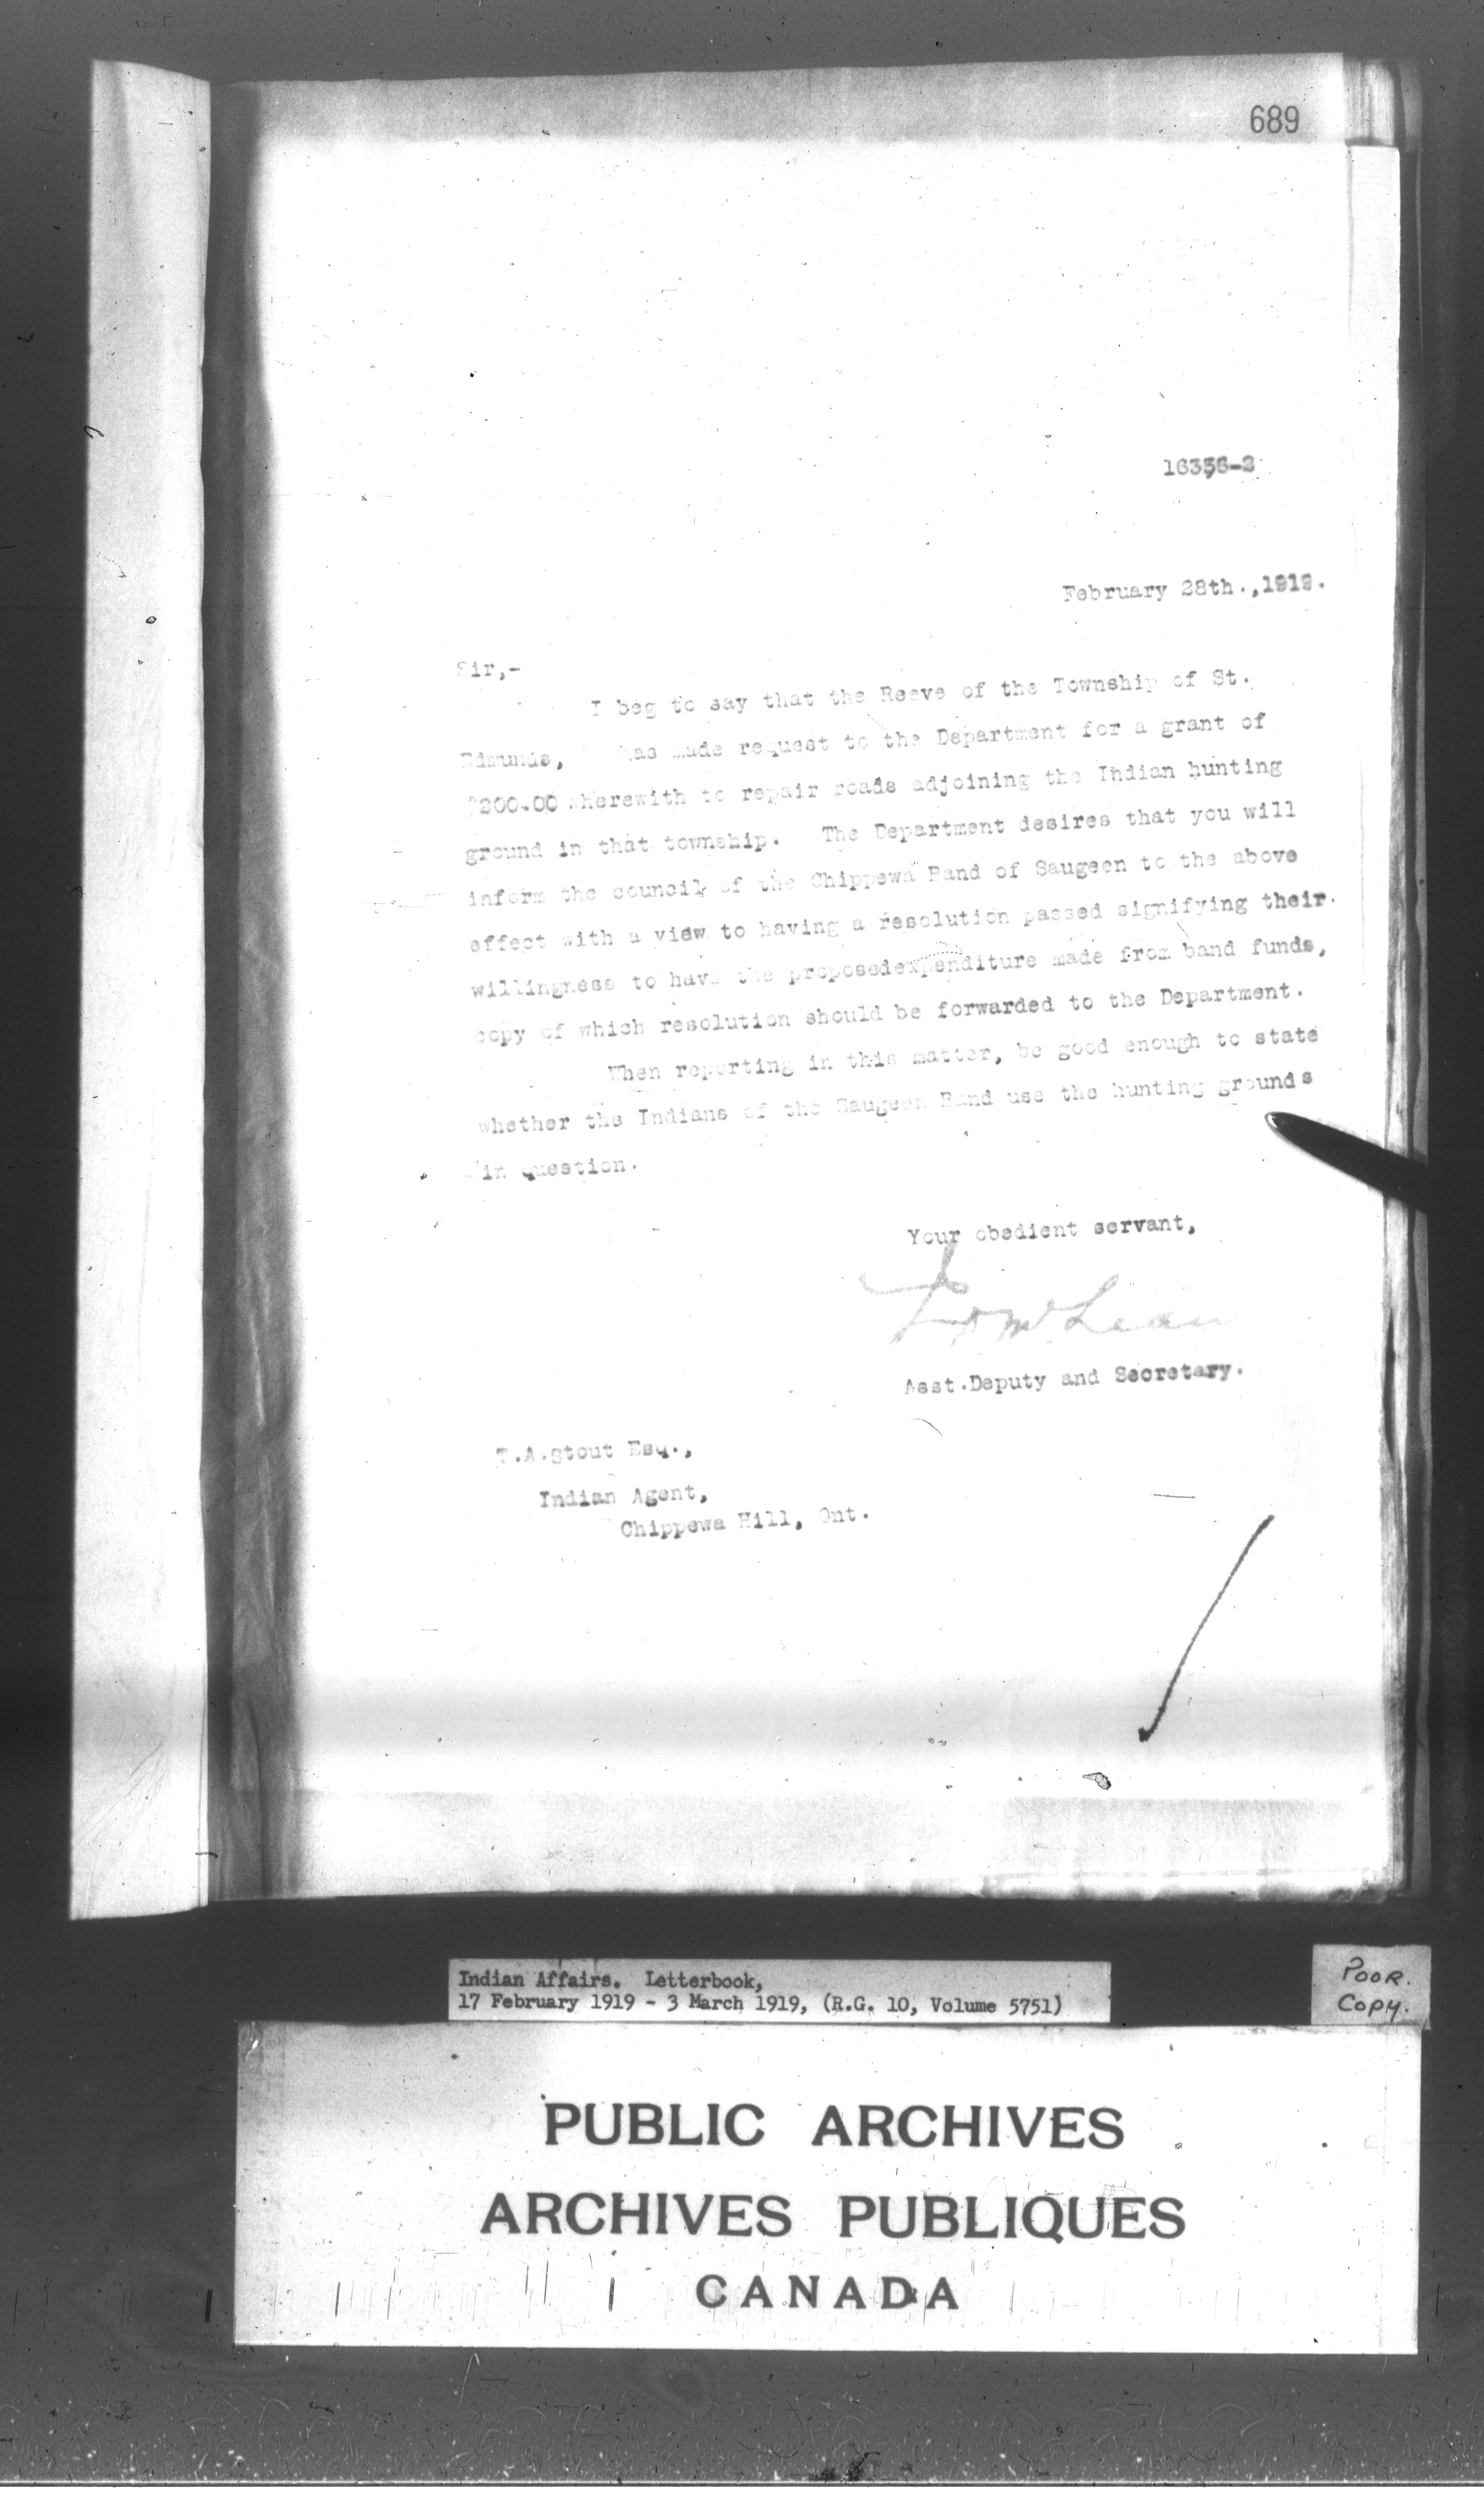 689
16356-2
February 28th.,1919.
Sir,-
I beg to say that the Reeve of the Township of St.
Edmunds, has made request to the Department for a grant of
$200.00 wherewith to repair roads adjoining the Indian hunting
ground in that township. The Department desires that you will
inform the council of the Chippewa Band of Saugeen to the above
effect with a view to having a resolution passed signifying their
willingness to have the proposedexpenditure made from band funds,
copy of which resolution should be forwarded to the Department.
When reporting in this matter, be good enough to state
whether the Indians of the Saugeen Band use the hunting grounds
in question.
Your obedient servant,
McLean
Asst.Deputy and Secretary.
T.A.Stout Esq.,
Indian Agent,
Chippewa Hill, Ont.
Indian Affairs. Letterbook,
17 February 1919 - 3 March 1919, (R.G. 10, Volume 5751)
POOR.
COPY.
PUBLIC ARCHIVES
ARCHIVES PUBLIQUES
CANADA